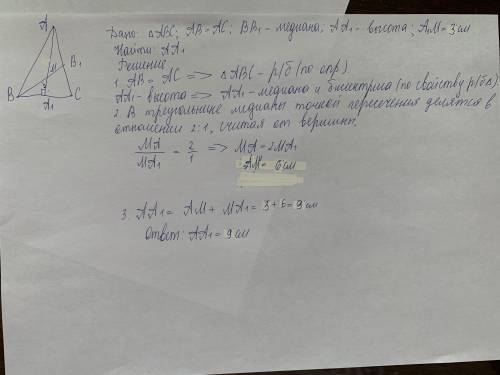 Дано: △ABC; AB=AC; BB₁-медиана; AA₁-высота; AM=3см
Найти: AA₁
Решение
1. AB = AC => △ABC - р/б (по опр)
AA₁-высота => AA₁-медиана и биссектриса (по свойству р/б△)
2. В треугольнике медианы точкой пересечения делятся в
отношении 2:1, считая от вершины.
MA/MA₁ = 2/1 => MA=2MA₁
AM = 6 см
3. AA₁ = AM + MA₁ = 3+6=9см
Ответ: AA₁ = 9см
A
B₁
M
B
C
A₁